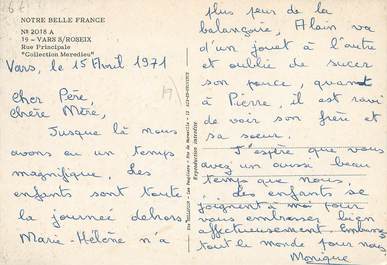 NOTRE BELLE FRANCE
No 2018 A
19 - VARS S/ROSEIX
Rue Principale
"Collection Meredieu"
Vars, le 15 Avril 1971
Cher Père,
Chère Mère,
Jusque là nous
avons eu un temps
magnifique. Les
enfants sont toute
la journée dehors
Marie-Hélène n'a
Reproduction interdite
plus peur de la
balançoire, Alain va
d'un jouet à l'autre
et oublie de sucer
son pouce, quant
à Pierre, il est ravi
de voir son frère et
sa soeur.
J'espère que vous
avez un aussi beau
temps que nous,
Les enfants se
joignent à moi pour
vous embrasser bien
affectueusement. Embrassez
tout le monde pour nous
Monique